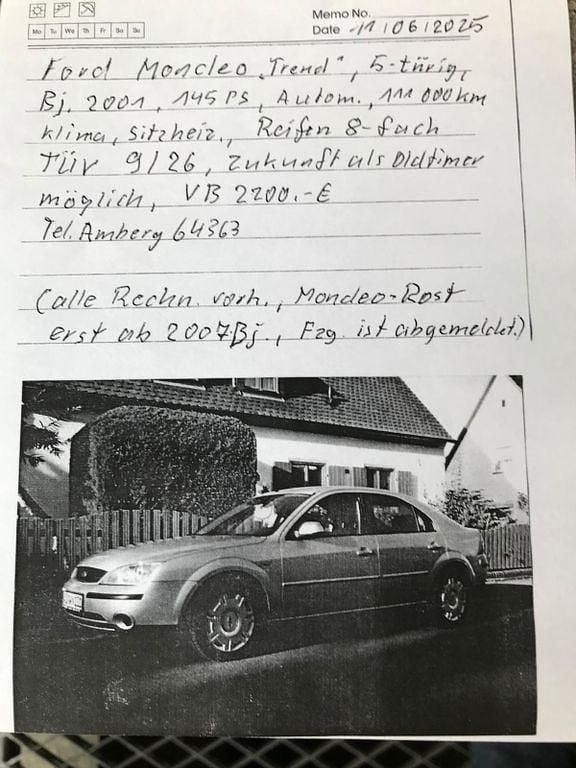 Memo No.
Mo Tu We Th Fr Sa Su
Date 11/06/2025
Ford Mondeo „Trend“, 5-türig,
Bj. 2001, 145 PS, Autom., 111 000 km
Klima, Sitzheiz., Reifen 8-fach
TÜV 9/26, Zukunft als Oldtimer
möglich, VB 2200.-€
Tel. Amberg 64363
(alle Rechn. vorh., Mondeo-Rost
erst ab 2007 Bj., Fzg. ist abgemeldet.)